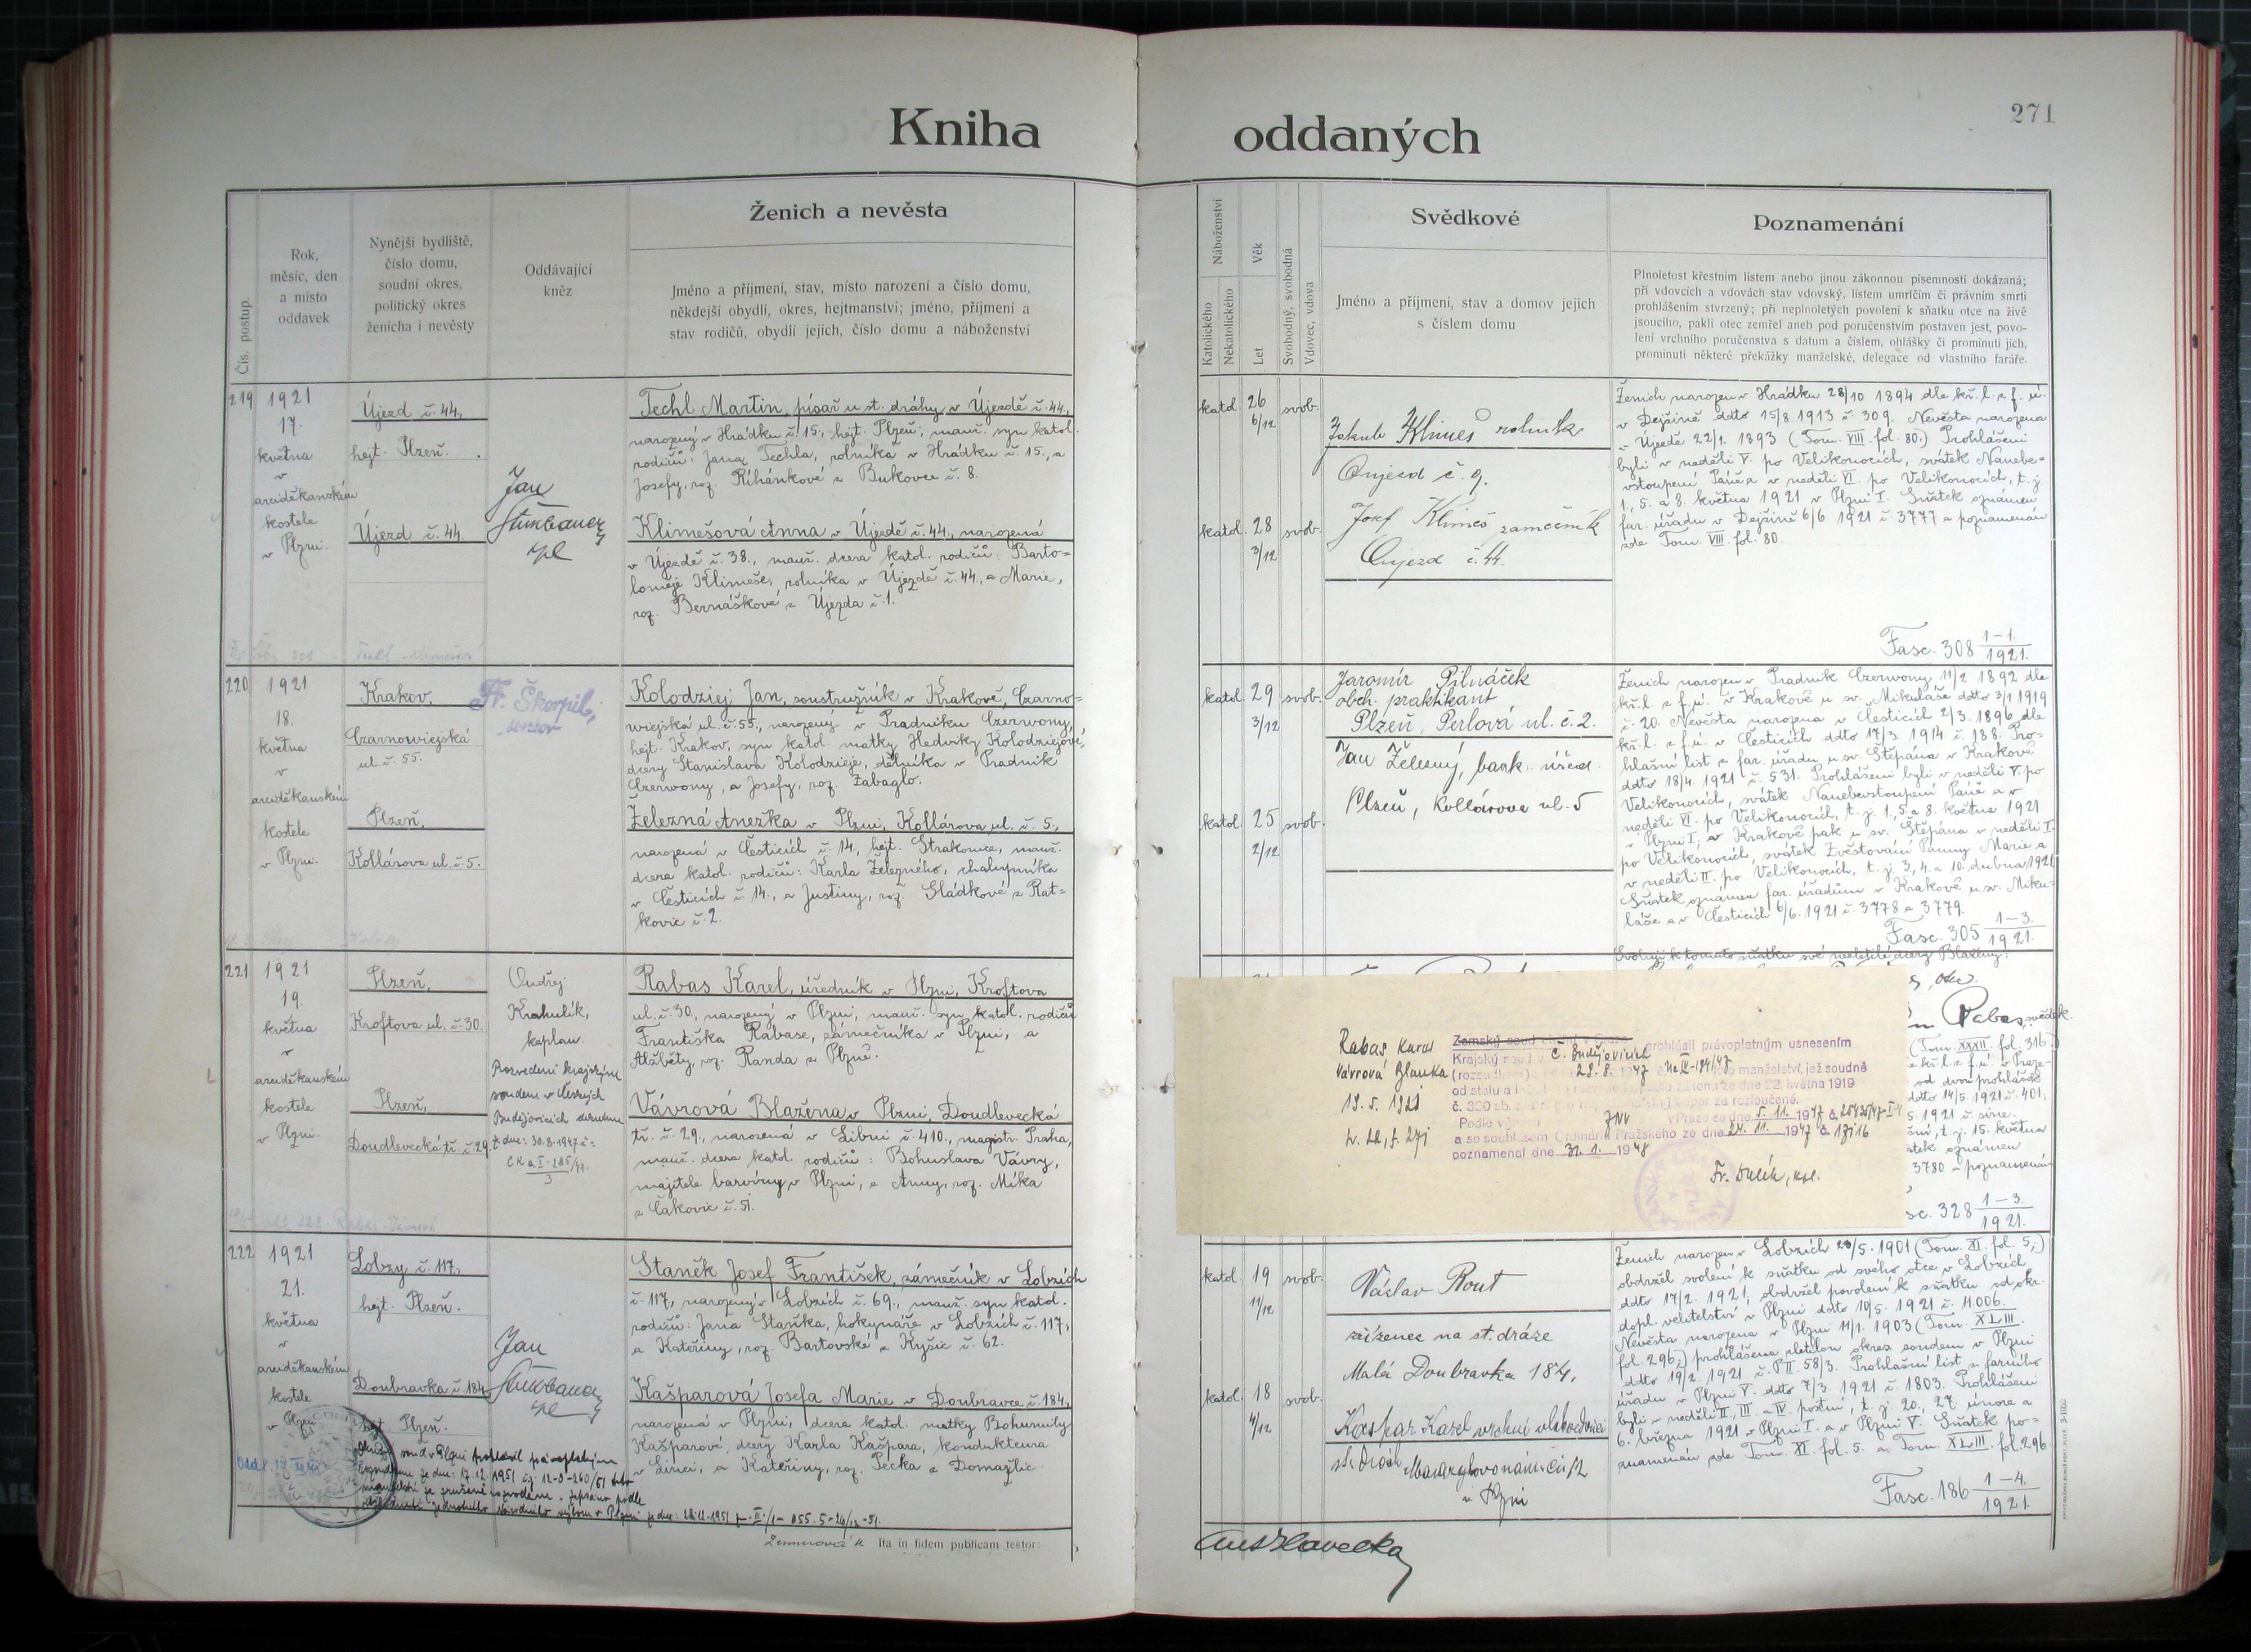 Kniha oddaných
271
Čís. postup.
Rok,
měsíc, den
a místo
oddavek
Nynější bydliště,
číslo domu,
soudní okres,
politický okres
ženicha i nevěsty
Oddávající
kněz
Ženich a nevěsta
Jméno a příjmení, stav, místo narození a číslo domu,
někdejší obydlí, okres, hejtmanství; jméno, příjmení a
stav rodičů, obydlí jejich, číslo domu a náboženství
Náboženství
Katolického
Nekatolického
Věk
Let
Svobodný, svobodná
Vdovec, vdova
Svědkové
Jméno a příjmení, stav a domov jejich
s číslem domu
Poznamenání
Plnoletost křestním listem anebo jinou zákonnou písemností dokázaná;
při vdovcích a vdovách stav vdovský, listem umrlčím či právním smrti
prohlášením stvrzený; při neplnoletých povolení k sňatku otce na živě
jsoucího, pakli otec zemřel aneb pod poručenstvím postaven jest, povo-
lení vrchního poručenstva s datum a číslem, ohlášky či prominutí jich,
prominutí některé překážky manželské, delegace od vlastního faráře.
219
1921
17.
května
v
arciděkanském
kostele
v Plzni.
Újezd č. 44.,
hejt. Plzeň.
Újezd č. 44.
Jan
Techl Martin, písař u st. dráhy v Újezdě č. 44.,
narozený v Hrádku č. 15., hejt. Plzeň; manž. syn katol.
rodičů: Jana Techla, rolníka v Hrádku č. 15., a
Josefy, roz. Říhánkové z Bukovce č. 8.
Klimešová Anna v Újezdě č. 44., narozená
v Újezdě č. 38., manž. dcera katol. rodičů: Barto=
loměje Klimeše, rolníka v Újezdě č. 44., a Marie,
roz. Bernáškové z Újezda č. 1.
katol. 26 6/12 svob.
katol. 28 3/12 svob.
Jakub Klimeš rolník
Oujezd č. 9.
Josef Klimeš zámečník
Oujezd č. 44.
Ženich narozen v Hrádku 28/10 1894 dle kř. l. z f. ú.
v Dejšině ddto 15/8 1913 č. 309. Nevěsta narozena
v Újezdě 22/1. 1893 (Tom. VIII. fol. 80.) Prohlášeni
byli v neděli V. po Velikonocích, svátek Nanebe=
vstoupení Páně a v neděli VI. po Velikonocích, t. j.
1., 5. a 8. května 1921 v Plzni I. Sňatek oznámen
far. úřadu v Dejšině 6/6 1921 č. 3777 a poznamenán
zde Tom. VIII. fol. 80.
Fasc. 308 1-1. 1921.
220
1921
18.
května
v
arciděkanském
kostele
v Plzni.
Krakov,
Czarnowiejská
ul. č. 55.
Plzeň,
Kollárova ul. č. 5.
Fr. Škorpil,
senior
Kolodziej Jan, soustružník v Krakově, Czarno=
wiejská ul. č. 55., narozený v Pradniku Czerwony,
hejt. Krakov, syn katol. matky Hedviky Kolodziejové,
dcery Stanislava Kolodzieje, dělníka v Pradnik
Czerwony, a Josefy, roz. Zabaglo.
Železná Anežka v Plzni, Kollárova ul. č. 5.,
narozená v Čestících č. 14., hejt. Strakonice, manž.
dcera katol. rodičů: Karla Železného, chalupníka
v Čestících č. 14., a Justiny, roz. Sládkové z Rat=
kovic č. 2.
katol. 29 3/12 svob.
katol. 25 2/12 svob.
Jaromír Pilnáček
obch. praktikant
Plzeň, Perlová ul. č. 2.
Jan Železný, bank. úřed.
Plzeň, Kollárova ul. 5
Ženich narozen v Pradnik Czerwony 11/2 1892 dle
kř. l. z f. ú. v Krakově u sv. Mikuláše ddto 3/1 1919
č. 20. Nevěsta narozena v Čestících 2/3. 1896 dle
kř. l. z f. ú. v Čestících ddto 17/3 1914 č. 188. Pro=
hlašní list z far. úřadu u sv. Štěpána v Krakově
ddto 18/4. 1921 č. 531. Prohlášeni byli v neděli V. po
Velikonocích, svátek Nanebevstoupení Páně a v
neděli VI. po Velikonocích, t. j. 1., 5. a 8. května 1921
v Plzni I, v Krakově pak u sv. Štěpána v neděli I.
po Velikonocích, svátek Zvěstování Panny Marie a
v neděli II. po Velikonocích, t. j. 3., 4. a 10. dubna 1921.
Sňatek oznámen far. úřadům v Krakově u sv. Miku=
láše a v Čestících 6/6. 1921 č. 3778 a 3779.
Fasc. 305 1-3. 1921.
221
1921
19.
května
v
arciděkanském
kostele
v Plzni.
Plzeň,
Kroftova ul. č. 30.
Plzeň,
Doudlevecká tř. č. 29.
Ondřej
Krahulík,
kaplan.
Rozvedeni krajským
soudem v Českých
Budějovicích
Rabas Karel, úředník v Plzni, Kroftova
ul. č. 30., narozený v Plzni, manž. syn katol. rodičů
Františka Rabase, zámečníka v Plzni, a
Alžběty, roz. Randa z Plzně.
Vávrová Blažena v Plzni, Doudlevecká
tř. č. 29., narozená v Libni č. 410., magistr. Praha,
manž. dcera katol. rodičů: Bohuslava Vávry,
majitele barvírny v Plzni, a Anny, roz. Míka
z Čakovic č. 51.
Svoluji k tomuto sňatku své nezletilé dcery Blaženy:
otec.
Rabas, svědek.
(Tom. XXXII. fol. 316.)
Rabas Karel
Vávrová Blanka
19. 5. 1921
Zemský soud
prohlásil právoplatným usnesením
Krajský soud v Č. Budějovicích
28. 8. 1947
manželství, jež soudně
od stolu a
zákona ze dne 22. května 1919
č. 320 sb.
za rozloučené.
Podle
v Praze ze dne 5. 11. 1947 č.
a se souhlasem Ordinariátu Pražského ze dne 24. 11. 1947 č.
poznamenal dne 31. 1. 1948
3780 a poznamenán
328 1-3. 1921.
222
1921
21.
května
v
arciděkanském
kostele
v Plzni.
Lobzy č. 117.,
hejt. Plzeň.
Doubravka č. 184.
hejt. Plzeň.
Jan
Staněk Josef František, zámečník v Lobzích
č. 117., narozený v Lobzích č. 69., manž. syn katol.
rodičů: Jana Staňka, hokynáře v Lobzích č. 117.,
a Kateřiny, roz. Bartovské z Kyšic č. 62.
Kašparová Josefa Marie v Doubravce č. 184.,
narozená v Plzni, dcera katol. matky Bohumily
Kašparové, dcery Karla Kašpara, kondukteura
v Linci, a Kateřiny, roz. Pecka z Domažlic.
katol. 19 11/12 svob.
katol. 18 4/12 svob.
Václav Rout
zřízenec na st. dráze
Malá Doubravka 184.
Kašpar Karel vrchní vlakvedoucí
st. drah
v Plzni
Ženich narozen v Lobzích 29/5. 1901 (Tom. XI. fol. 5.;)
obdržel svolení k sňatku od svého otce v Lobzích
ddto 17/2. 1921, obdržel povolení k sňatku od okr.
dopl. velitelství v Plzni ddto 10/5. 1921 č. 11.006.
Nevěsta narozena v Plzni 11/1. 1903 (Tom. XLIII.
fol. 296.;) prohlášena zletilou okres. soudem v Plzni
ddto 19/2. 1921 č. P II 58/3. Prohlašní list z farního
úřadu v Plzni V. ddto 7/3. 1921 č. 1803. Prohlášeni
byli v neděli II., III. a IV. postní, t. j. 20., 27. února a
6. března 1921 v Plzni I. a v Plzni V. Sňatek po=
znamenán zde Tom. XI. fol. 5. a Tom. XLIII. fol. 296.
Fasc. 186 1-4. 1921.
Ita in fidem publicam testor: